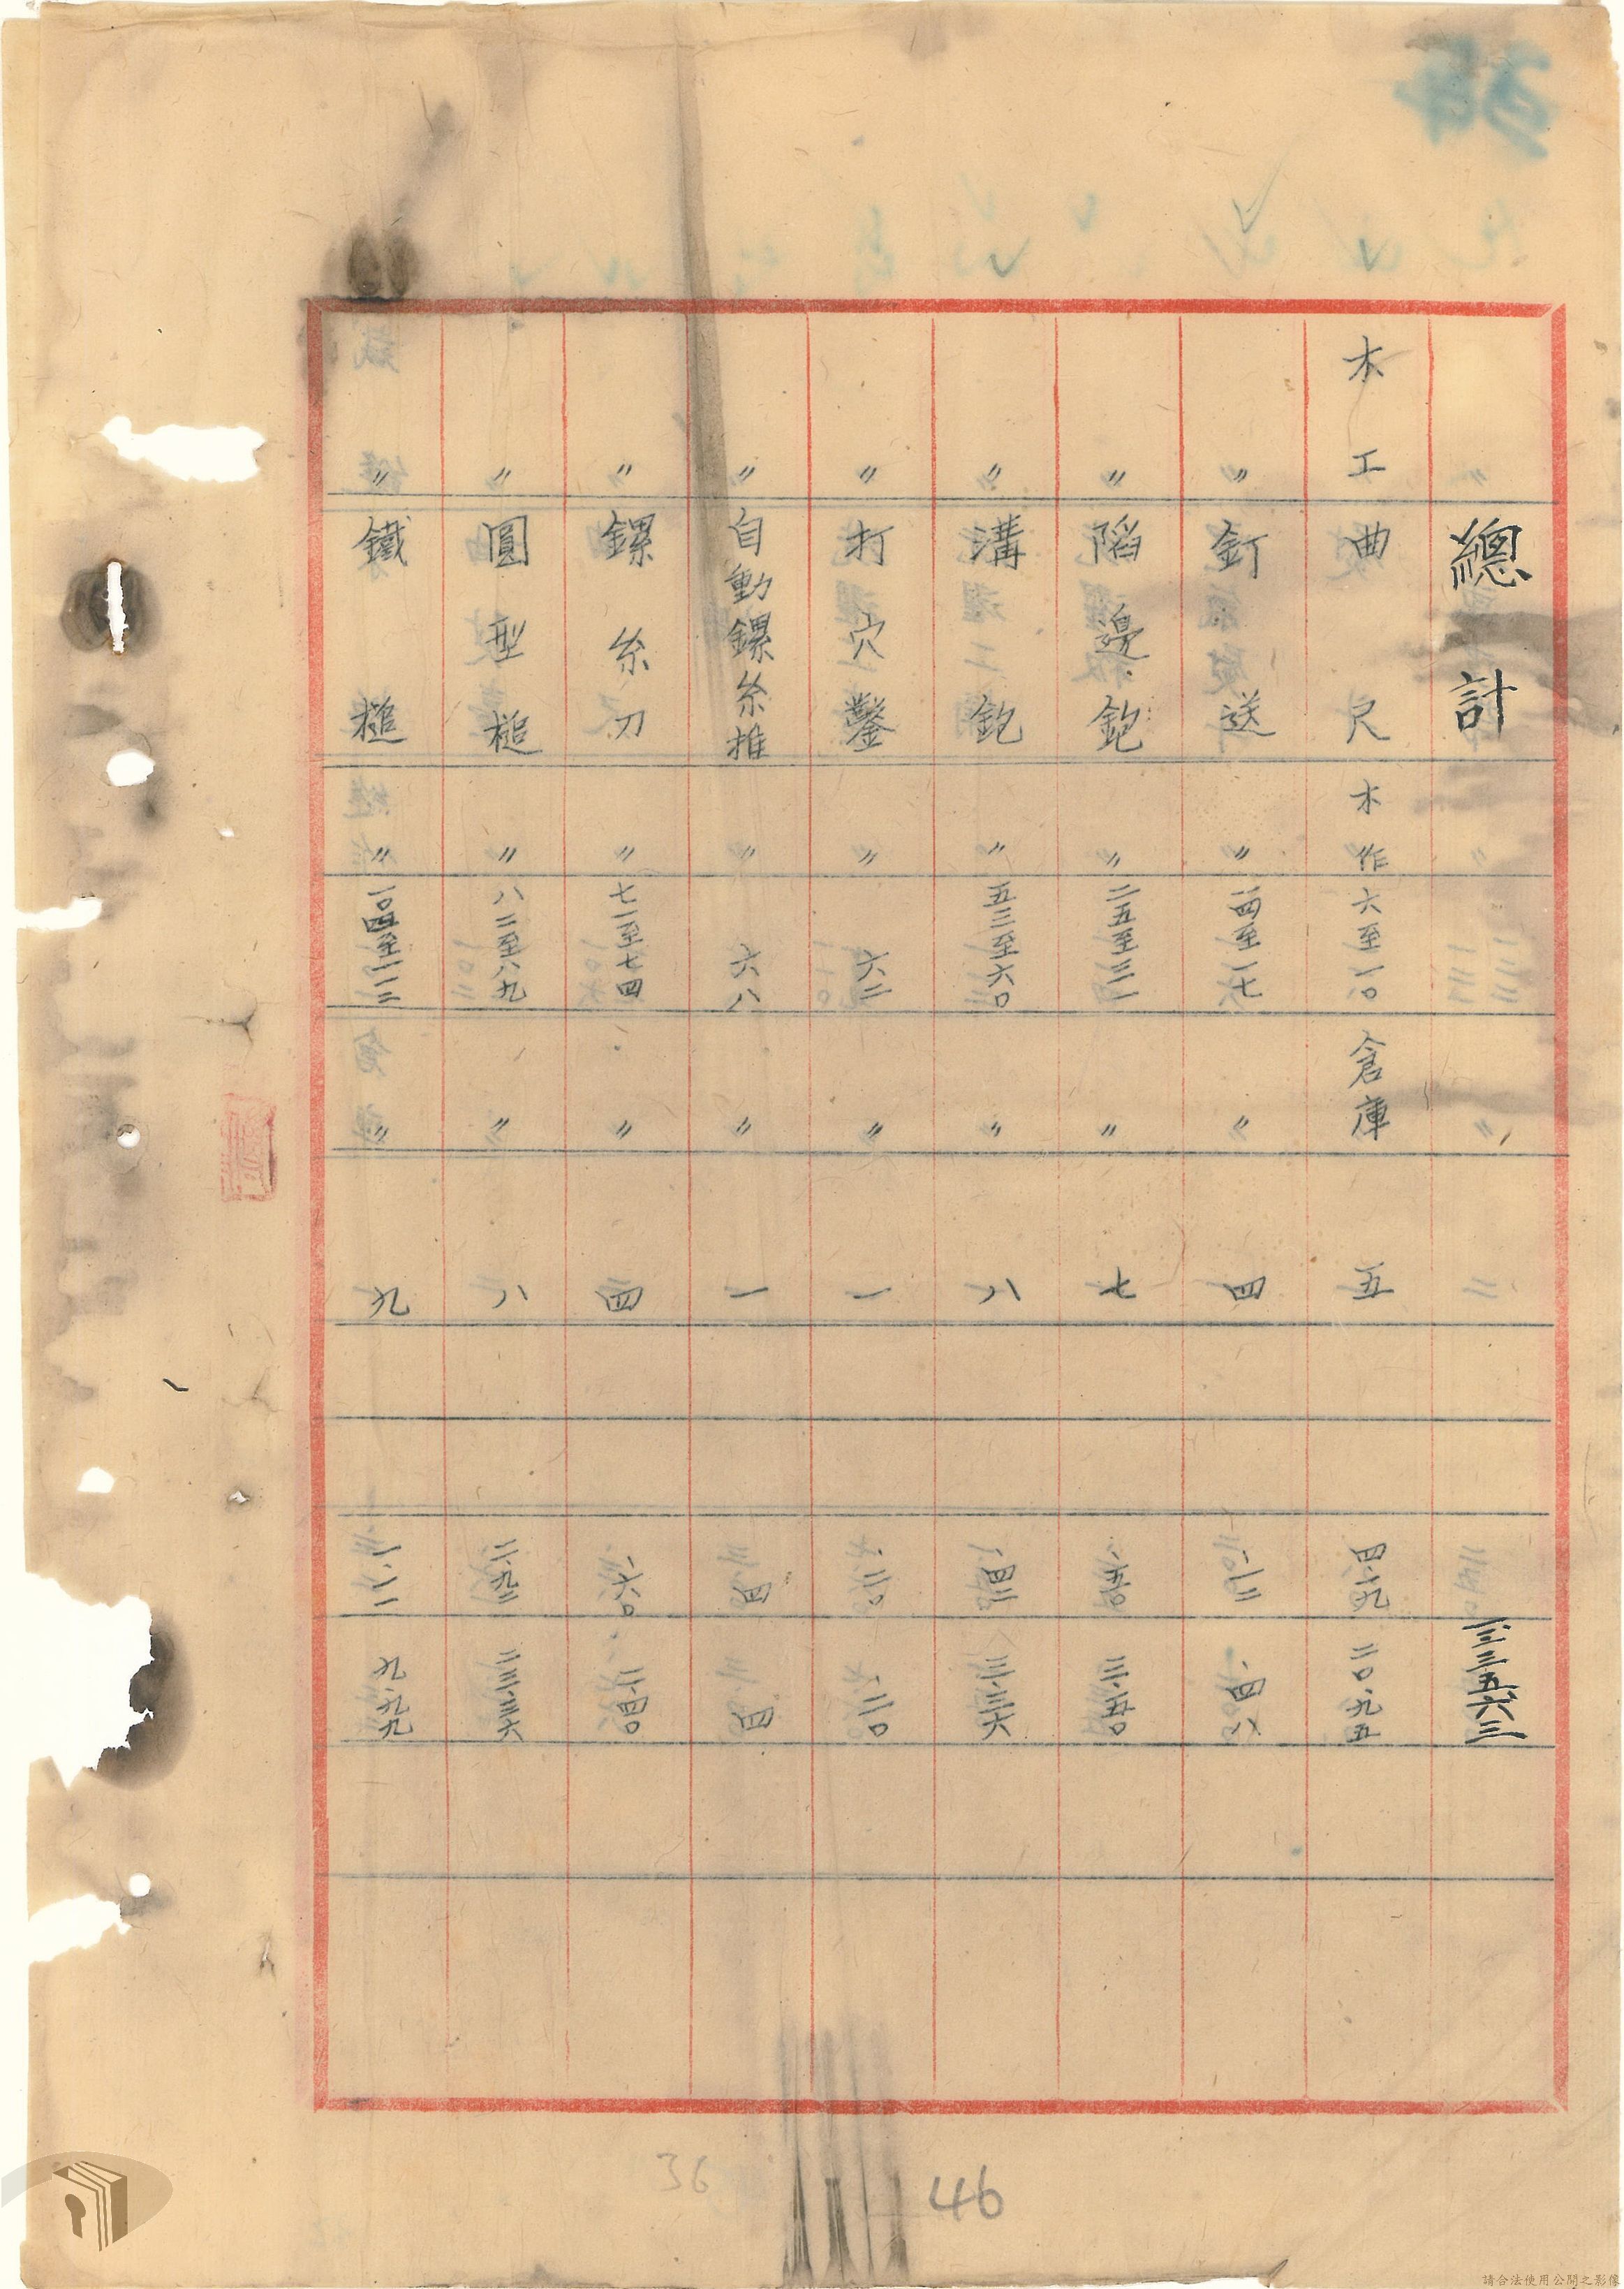 總計
木工 曲尺 木作 六至一〇 倉庫 五 四·一九 二〇·九五
〃 釘送 〃 一四至一七 〃 四 ·一二 ·四八
〃 陷邊鉋 〃 二五至三一 〃 七
〃 溝鉋 〃 五三至六〇 〃 八 ·四二 三·三六
〃 打穴鑿 〃 六二 〃 一
〃 自動鏍糸推 〃 六八 〃 一
〃 鏍糸刀 〃 七一至七四 〃 四 ·六〇 二·四〇
〃 圓型槌 〃 八二至八九 〃 八 二·九二 二三·三六
〃 鐵槌 〃 一〇四至一一二 〃 九 一·一一 九·九九
36
46
請合法使用公開之影像